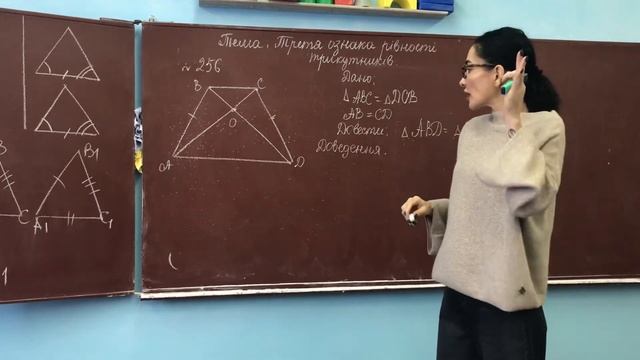 Тема: Третя ознака рівності
трикутників.
№ 256
Дано:
△ABC = △DCB
AB = CD
Довести: △ABD = △
Доведення.
B C
O
A D
B1
C A1 C1
1